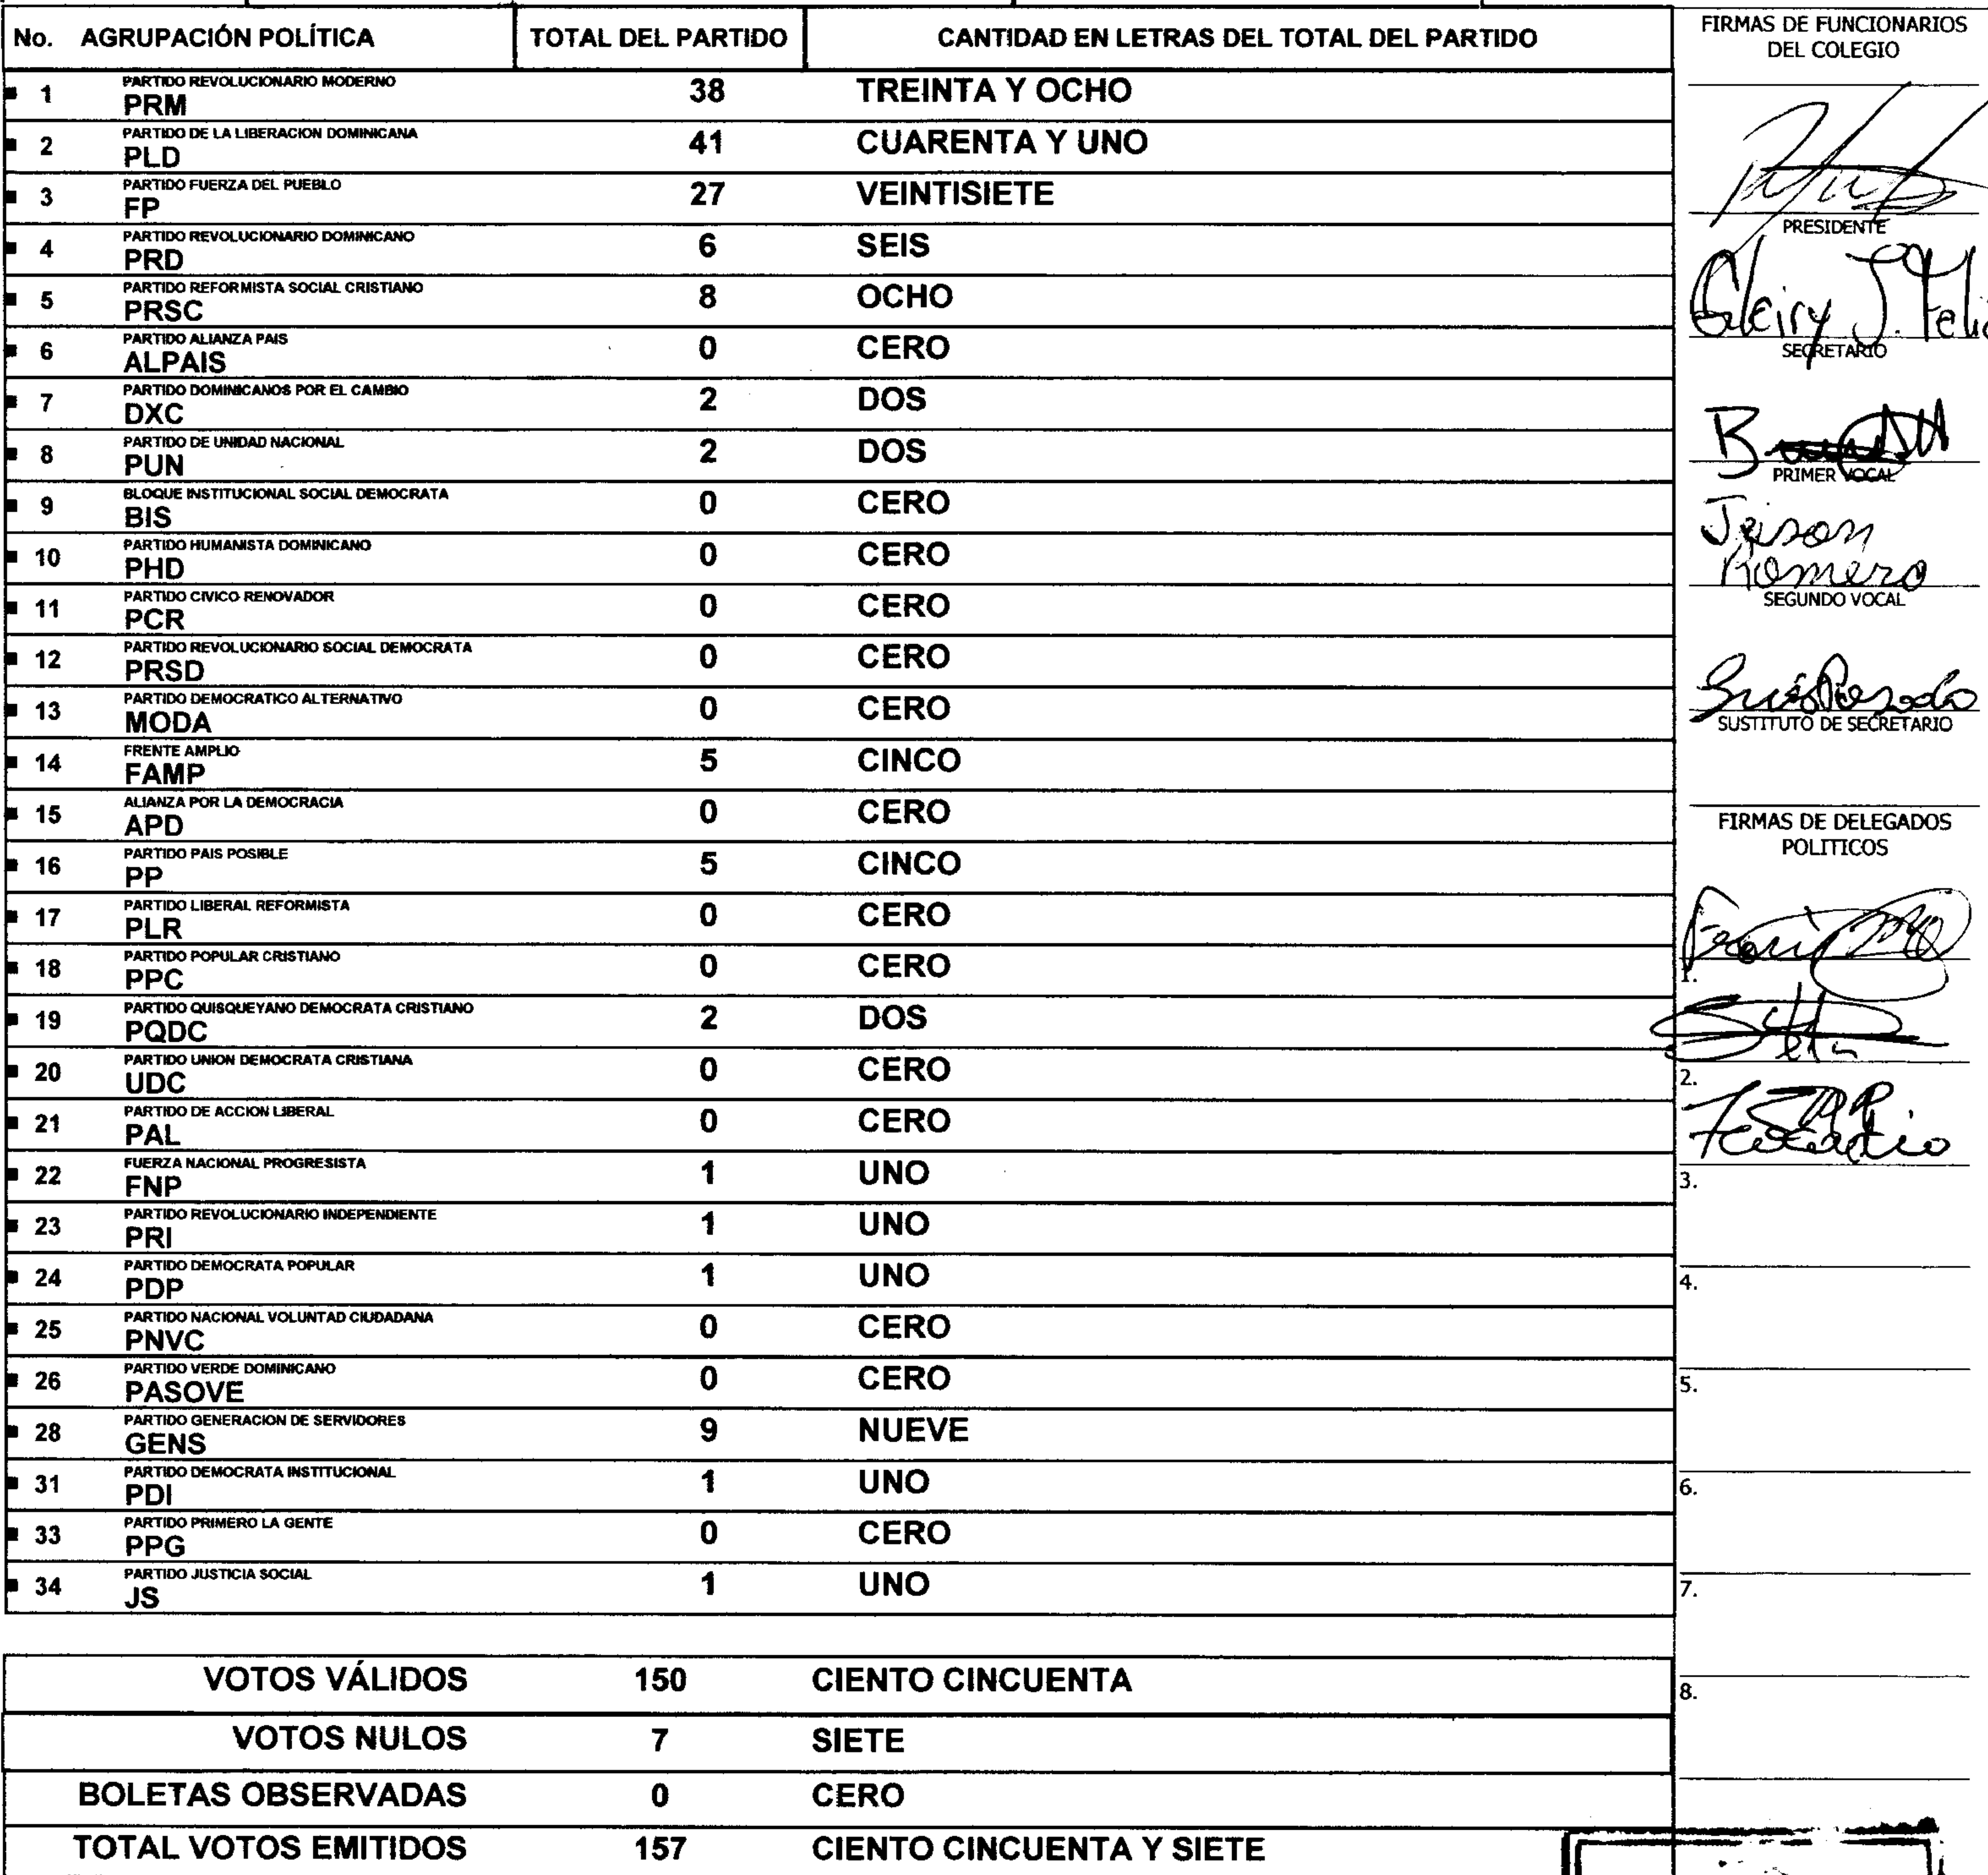 No. AGRUPACIÓN POLÍTICA TOTAL DEL PARTIDO CANTIDAD EN LETRAS DEL TOTAL DEL PARTIDO
PARTIDO REVOLUCIONARIO MODERNO
1 PRM 38 TREINTA Y OCHO
PARTIDO DE LA LIBERACION DOMINICANA
2 PLD 41 CUARENTA Y UNO
PARTIDO FUERZA DEL PUEBLO
3 FP 27 VEINTISIETE
PARTIDO REVOLUCIONARIO DOMINICANO
4 PRD 6 SEIS
PARTIDO REFORMISTA SOCIAL CRISTIANO
5 PRSC 8 OCHO
PARTIDO ALIANZA PAIS
6 ALPAIS 0 CERO
PARTIDO DOMINICANOS POR EL CAMBIO
7 DXC 2 DOS
PARTIDO DE UNIDAD NACIONAL
8 PUN 2 DOS
BLOQUE INSTITUCIONAL SOCIAL DEMOCRATA
9 BIS 0 CERO
PARTIDO HUMANISTA DOMINICANO
10 PHD 0 CERO
PARTIDO CIVICO RENOVADOR
11 PCR 0 CERO
PARTIDO REVOLUCIONARIO SOCIAL DEMOCRATA
12 PRSD 0 CERO
PARTIDO DEMOCRATICO ALTERNATIVO
13 MODA 0 CERO
FRENTE AMPLIO
14 FAMP 5 CINCO
ALIANZA POR LA DEMOCRACIA
15 APD 0 CERO
PARTIDO PAIS POSIBLE
16 PP 5 CINCO
PARTIDO LIBERAL REFORMISTA
17 PLR 0 CERO
PARTIDO POPULAR CRISTIANO
18 PPC 0 CERO
PARTIDO QUISQUEYANO DEMOCRATA CRISTIANO
19 PQDC 2 DOS
PARTIDO UNION DEMOCRATA CRISTIANA
20 UDC 0 CERO
PARTIDO DE ACCION LIBERAL
21 PAL 0 CERO
FUERZA NACIONAL PROGRESISTA
22 FNP 1 UNO
PARTIDO REVOLUCIONARIO INDEPENDIENTE
23 PRI 1 UNO
PARTIDO DEMOCRATA POPULAR
24 PDP 1 UNO
PARTIDO NACIONAL VOLUNTAD CIUDADANA
25 PNVC 0 CERO
PARTIDO VERDE DOMINICANO
26 PASOVE 0 CERO
PARTIDO GENERACION DE SERVIDORES
28 GENS 9 NUEVE
PARTIDO DEMOCRATA INSTITUCIONAL
31 PDI 1 UNO
PARTIDO PRIMERO LA GENTE
33 PPG 0 CERO
PARTIDO JUSTICIA SOCIAL
34 JS 1 UNO
VOTOS VÁLIDOS 150 CIENTO CINCUENTA
VOTOS NULOS 7 SIETE
BOLETAS OBSERVADAS 0 CERO
TOTAL VOTOS EMITIDOS 157 CIENTO CINCUENTA Y SIETE
FIRMAS DE FUNCIONARIOS
DEL COLEGIO
PRESIDENTE
J.
SECRETARIO
PRIMER VOCAL
Jeison
Romero
SEGUNDO VOCAL
SUSTITUTO DE SECRETARIO
FIRMAS DE DELEGADOS
POLITICOS
1.
2.
3.
4.
5.
6.
7.
8.